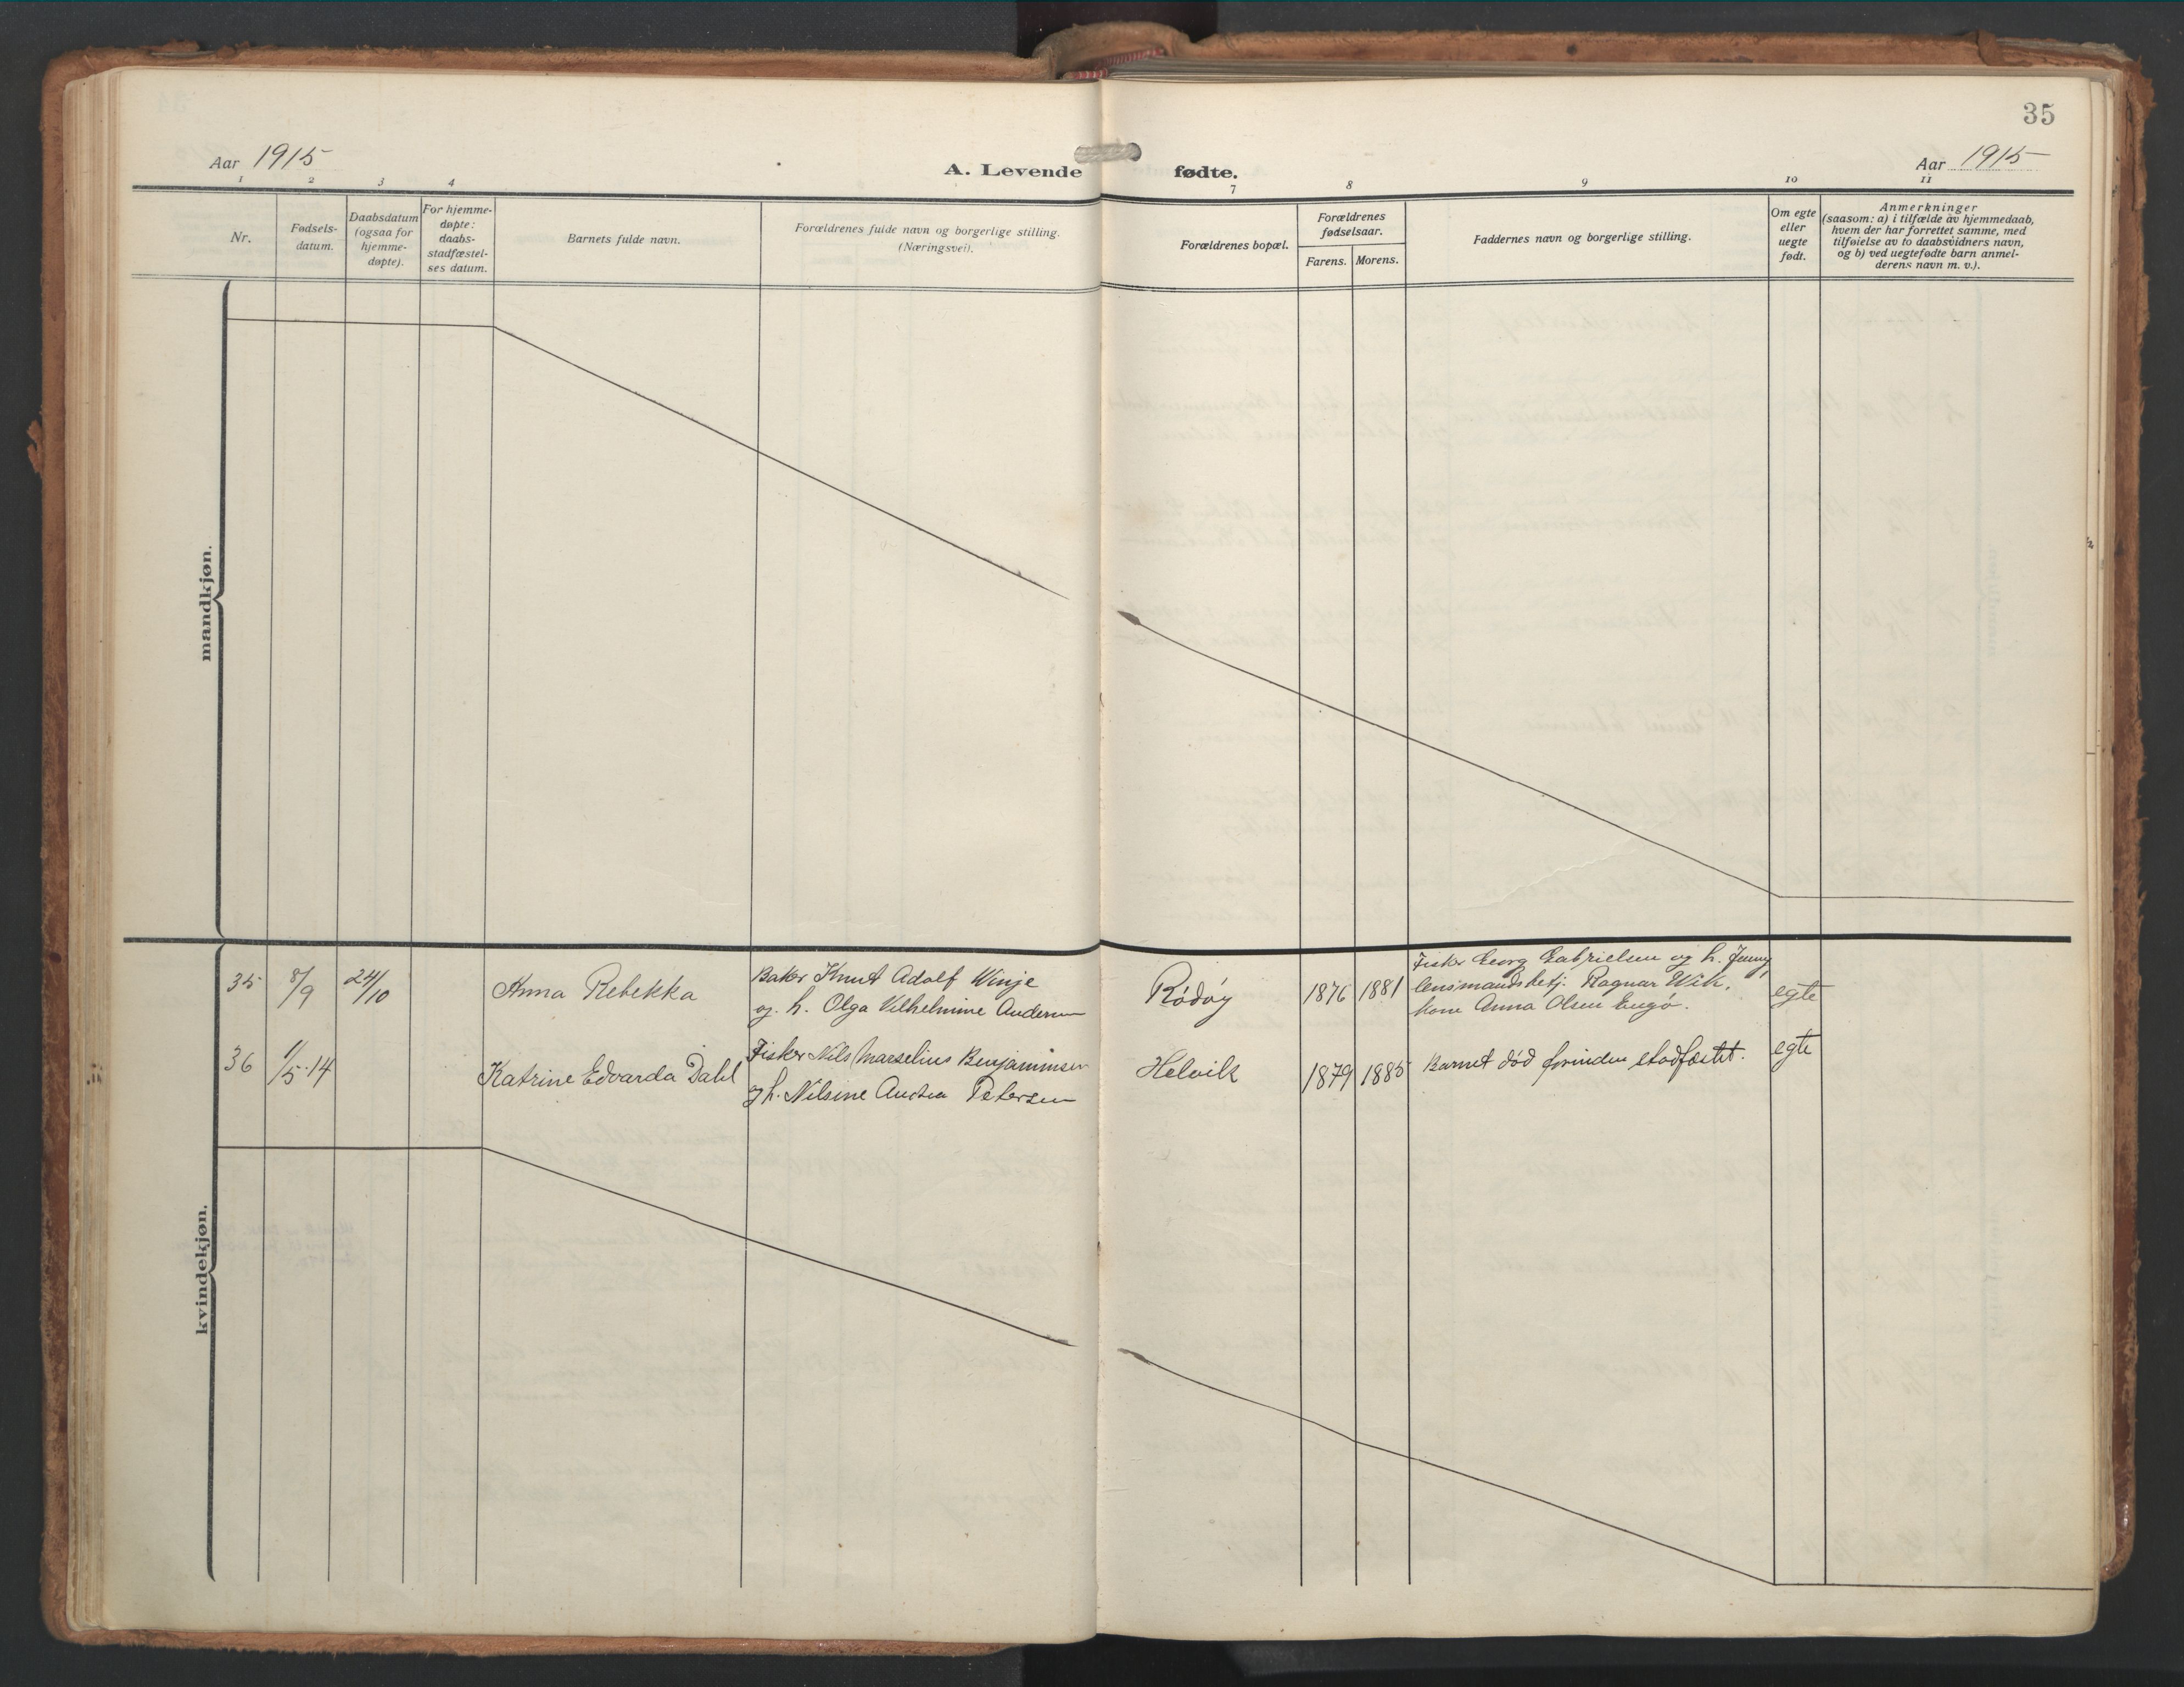 35
Aar 1915
A. Levende fødte.
Aar 1915
1 2 3 4 7 8 9 10 11
Nr.
Fødsels-
datum.
Daabsdatum
(ogsaa for
hjemme-
døpte).
For hjemme-
døpte:
daabs-
stadfæstel-
ses datum.
Barnets fulde navn.
Forældrenes fulde navn og borgerlige stilling.
(Næringsvei).
Forældrenes bopæl.
Forældrenes
fødselsaar.
Farens. Morens.
Faddernes navn og borgerlige stilling.
Om egte
eller
uegte
født.
Anmerkninger
(saasom: a) i tilfælde av hjemmedaab,
hvem der har forrettet samme, med
tilføielse av to daabsvidners navn,
og b) ved uegtefødte barn anmel-
derens navn m. v.).
mandkjøn.
kvindekjøn.
35 8/9 24/10 Anna Rebekka
Baker Knut Adolf Winje
og h. Olga Vilhelmine Andersen
Rödöy 1876 1881
Fisker Georg Gabrielsen og h. Jenny,
lensmandsbetj. Ragnar Wik,
kone Anna Olsen Engö.
egte
36 1/5-14 Katrine Edvarda Dahl
Fisker Nils Marselius Benjaminsen
og h. Nilsine Andrea Petersen
Helvik 1879 1885
Barnet död forinden stadfæstet.
egte